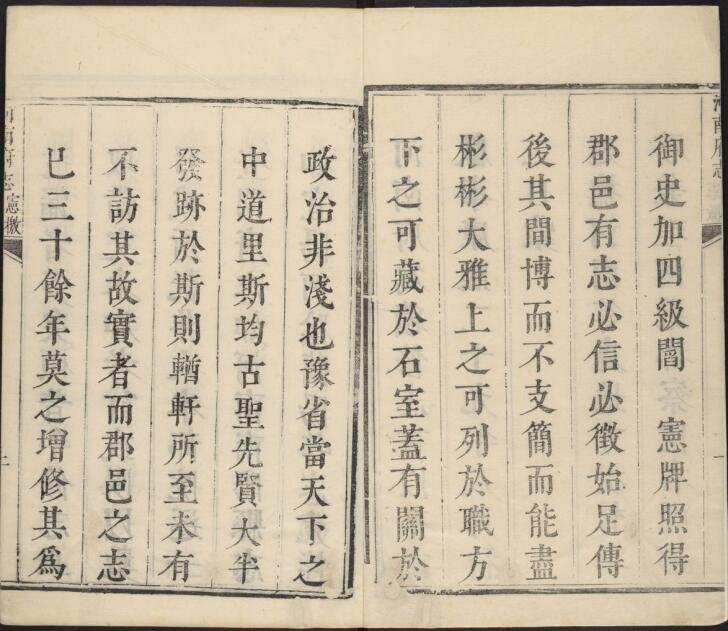 御史加四級閻 憲牌照得
郡邑有志必信必徴始足傳
後其間博而不支簡而能盡
彬彬大雅上之可列於職方
下之可藏於石室蓋有關於
政治非淺也豫省當天下之
中道里斯均古聖先賢大半
發跡於斯則輶軒所至未有
不訪其故實者而郡邑之志
已三十餘年莫之增修其爲
府志 憲檄